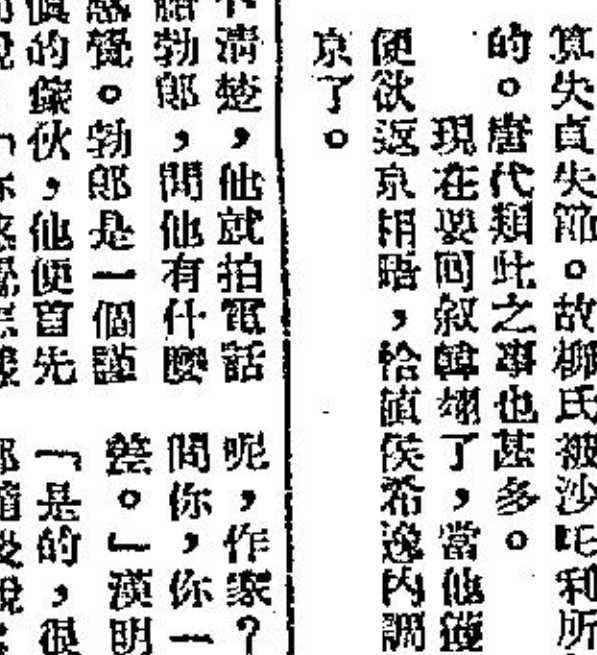 算失貞失節。故柳氏被沙吒利所
的。唐代類此之事也甚多。
現在要回叙韓翊了,當他獲
便欲返京相晤,恰值侯希逸內調
京了。
清楚,他就拍電話
勃郎,問他有什麼
感覺。勃郎是一個謹
慎的傢伙,他便首先
呢,作家?
問你,你一
漢明
「是的,很